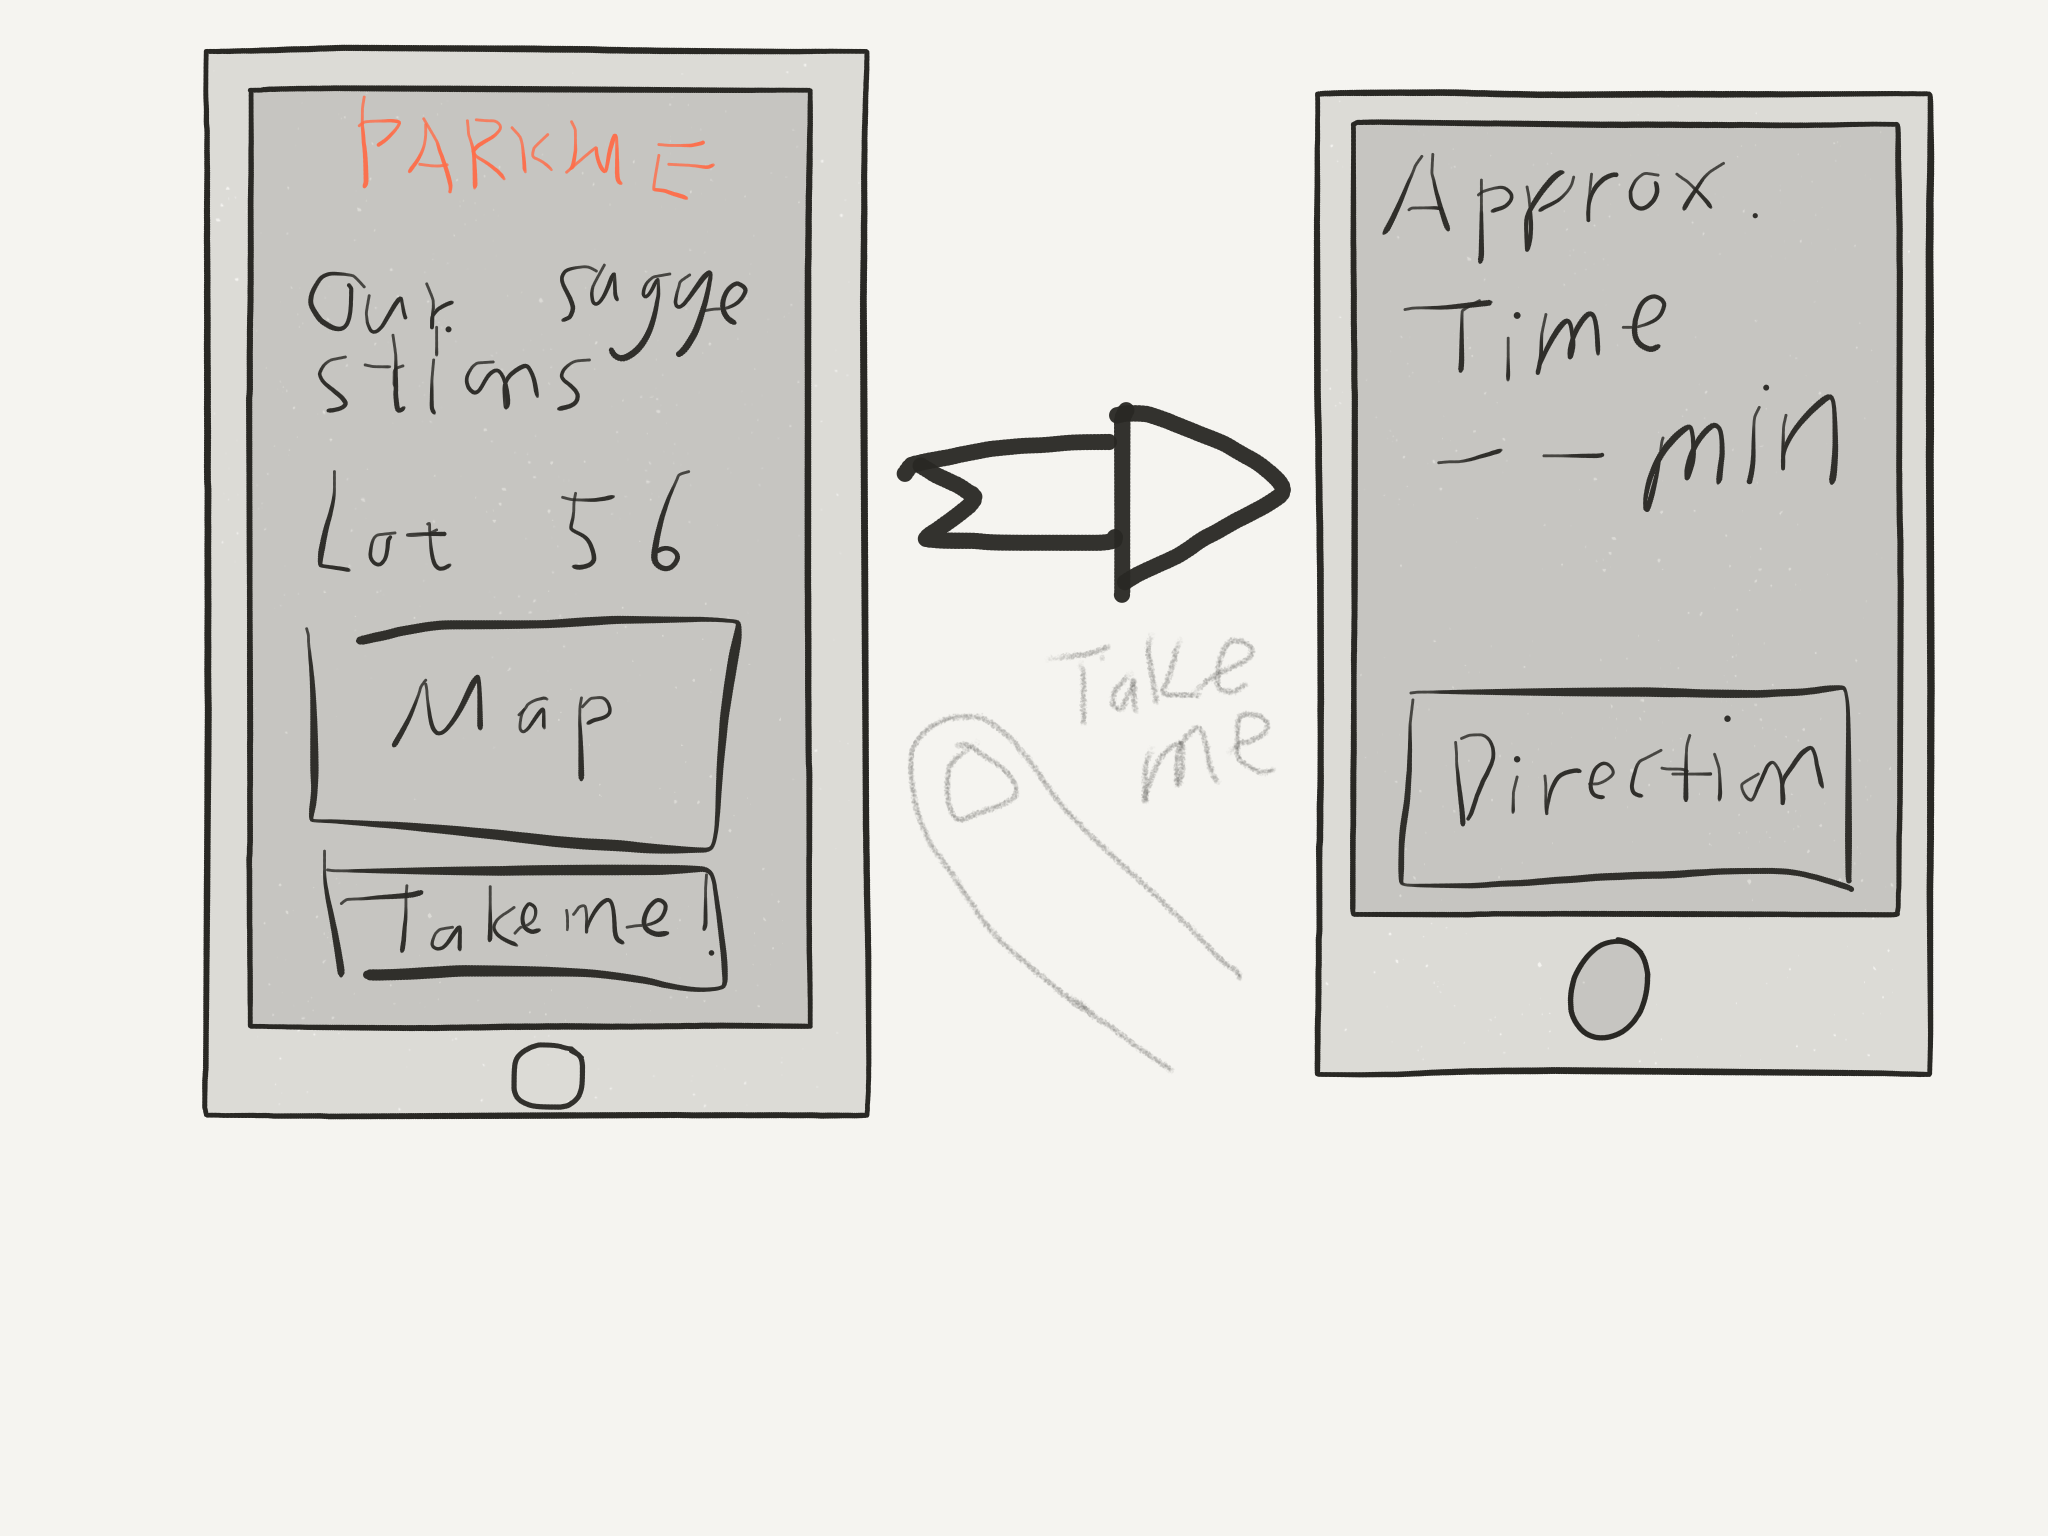 PARKME
Our sagge
stions
Lot 56
Map
Take me!
Take
me
Approx.
Time
-- min
Direction